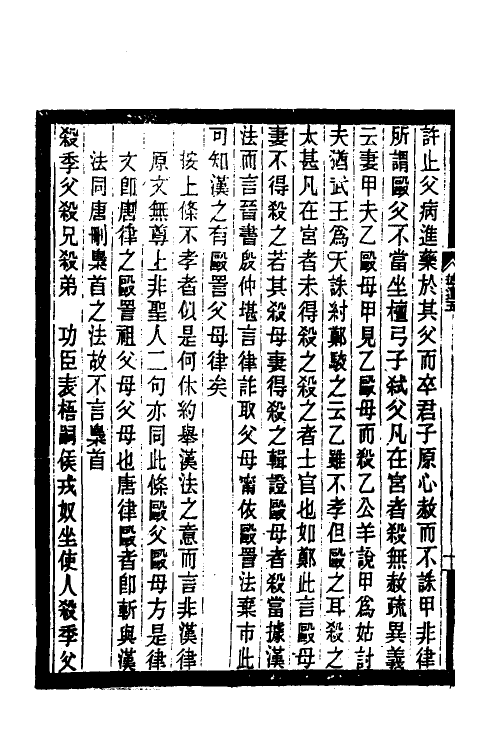 許止父病進藥於其父而卒君子原心赦而不誅甲非律
所謂毆父不當坐檀弓子弒父凡在宮者殺無赦疏異義
云妻甲夫乙毆母甲見乙毆母而殺乙公羊說甲爲姑討
夫猶武王爲天誅紂鄭駁之云乙雖不孝但毆之耳殺之
太甚凡在宮者未得殺之殺之者士官也如鄭此言毆母
妻不得殺之若其殺母妻得殺之輯證毆母者殺當據漢
法而言晉書殷仲堪言律詐取父母甯依毆詈法棄市此
可知漢之有毆詈父母律矣
按上條不孝者似是何休約舉漢法之意而言非漢律
原文無尊上非聖人二句亦同此條毆父毆母方是律
文卽唐律之毆詈祖父母父母也唐律毆者卽斬與漢
法同唐刪梟首之法故不言梟首
殺季父殺兄殺弟　功臣表梧嗣侯戎奴坐使人殺季父